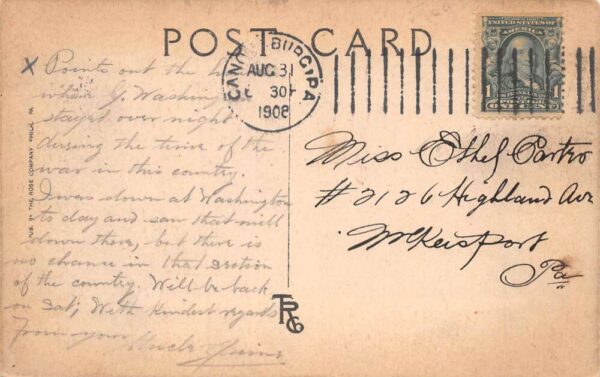 POST CARD
CANONSBURG, PA
AUG 31
6 30 P
1908
1
FRANKLIN
1
X Points out the
where G. Washington
stayed over night
during the time of the
war in this country.
I was down at Washington
to day and saw that mill
down there, but there is
no chance in that section
of the country. Will be back
on Sat, With kindest regards
From your
Uncle
Miss Ethel
# 2126 Highland Ave
McKeesport
Pa
PUB. BY THE ROSE COMPANY PHILA. PA.
TRC